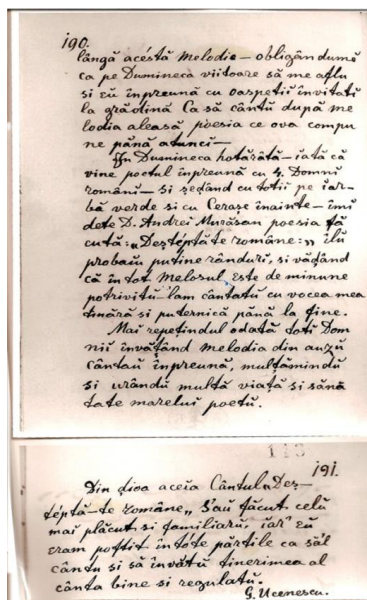 190.
lângă acéstă Melodie — obligându mĕ
ca pe Dumineca viitoare să me aflu
si eu înpreună cu oaspetii învitati
la grădină Ca să cântu după me
lodia aleasă poesia ce ova compu
ne până atunci —
În Dumineca hotărâtă — iată că
vine poetul înpreună cu 4. Domni
români — si şedând cu totii pe iar-
bă verde si cu Cerase înainte — îmi
dete D. Andrei Murăşan poesia fă
cută: „Deşteptăte române:„ îlŭ
probaiu putine rânduri, si vădând
că întot Melosul este de minune
potrivitŭ lam cântatu cu vocea mea
tinără si puternică până la fine.
Mai repeţindul odată toti Dom
nii învăţând melodia din auzu
cântau înpreună, multămindŭ
si urându multă viaţă si sănă
tate marelui poetŭ.
191.
Din dioa aceia Cântul „Deş-
téptă-te române„ S'au făcut celŭ
mai plăcut si familiarŭ, iar' eu
eram poftit în tóte părtile ca să'l
cântu si să învătŭ tinerimea al
cânta bine si regulatŭ.
G. Ucenescu.